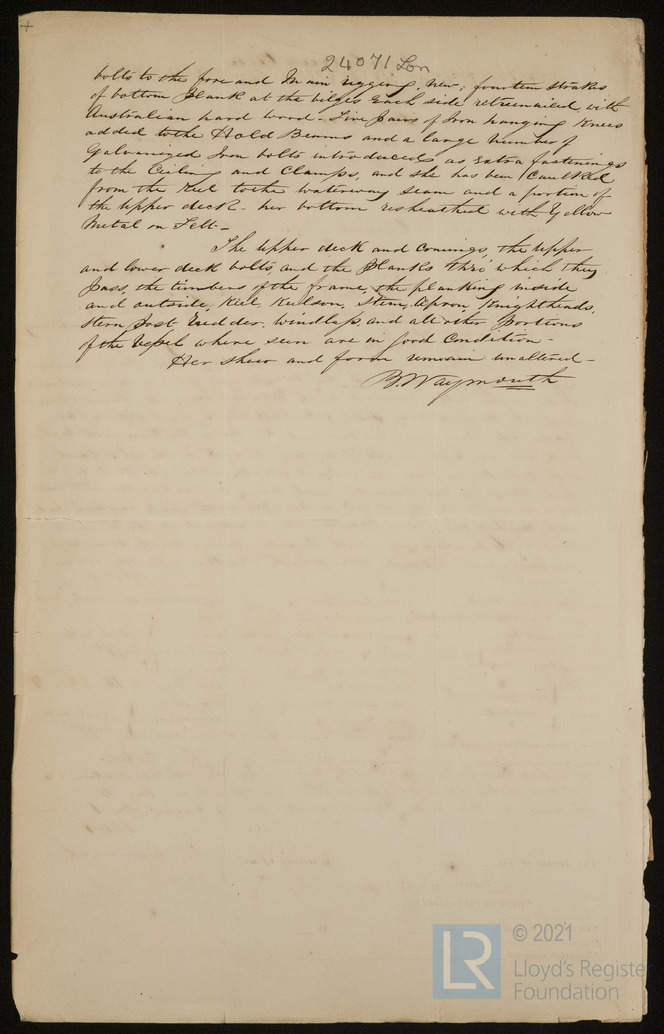 24071 Lon
bolts to the fore and Main rigging, New; fourteen strakes
of bottom Plank at the bilges each side retreenailed with
Australian hard wood - Five Pairs of Iron hanging Knees
added to the Hold Beams and a large number of
Galvanized Iron bolts introduced as Extra fastenings
to the Ceiling and Clamps, and she has been Caulked
from the Keel to the waterway seam and a portion of
the Upper deck - her bottom resheathed with Yellow
Metal on Felt -
The Upper deck and Comings, the Upper
and lower deck bolts, and the Planks thro' which they
Pass, the timbers of the frame, the planking inside
and outside, Keel, Keelson, Stem, Apron, Knightheads,
Stern Post, Rudder, Windlass, and all other Portions
of the Vessel where seen are in good Condition -
Her sheer and form remain unaltered -
B. Waymouth
LR
© 2021
Lloyd's Register
Foundation